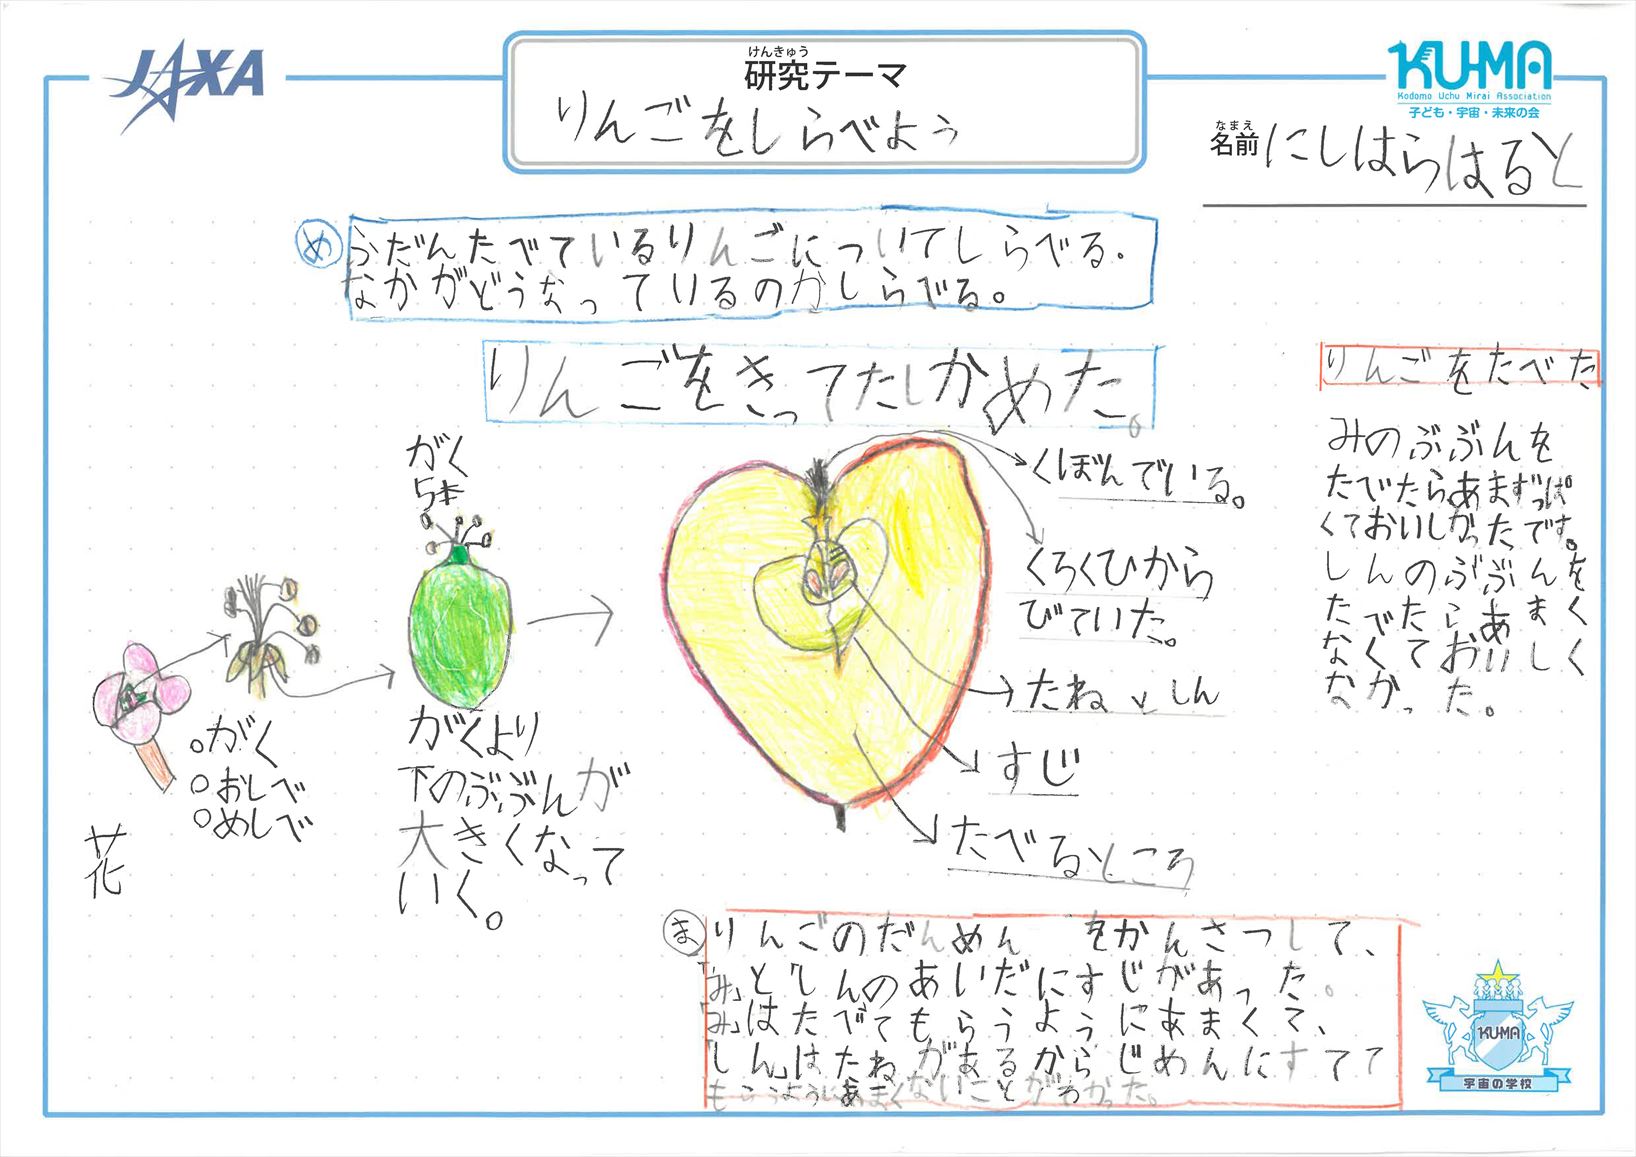 JAXA
けんきゅう
研究テーマ
りんごをしらべよう
KU-MA
Kodomo Uchu Mirai Association
子ども・宇宙・未来の会
なまえ
名前 にしはらはると
め ふだんたべているりんごについてしらべる.
なかがどうなっているのかしらべる。
りんごをきってたしかめた。
がく
5本
花
がく
おしべ
めしべ
がくより
下のぶぶんが
大きくなって
いく。
くぼんでいる。
くろくひから
びていた。
たねとしん
すじ
たべるところ
りんごをたべた
みのぶぶんを
たべたらあまずっぱ
くておいしかったです。
しんのぶぶんを
たべたらあま
くなくておいしく
なかった。
ま りんごのだんめん をかんさつして、
「み」と「しんのあいだにすじがあった。
「み」はたべてもらうようにあまくて、
「しん」はたねがあるからじめんにすてて
もらうようにあまくないことがわかった。
KU-MA
宇宙の学校